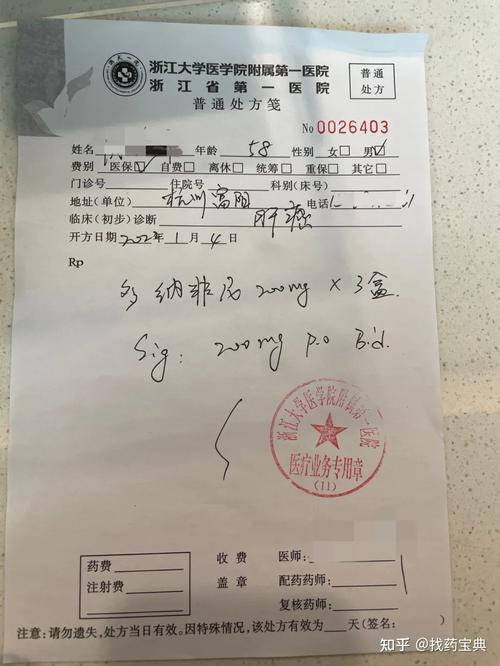 浙江大学医学院附属第一医院
浙江省第一医院
普通处方笺
普通处方
No 0026403
姓名 年龄 58 性别 女□ 男☑
费别 医保☑ 自费□ 离休□ 统筹□ 重保□ 其它□
门诊号 住院号 科别(床号)
地址(单位) 杭州富阳 电话
临床(初步)诊断 肝癌
开方日期 2023年1月4日
Rp
多纳非尼 200mg × 3盒
Sig: 200mg p.o B.i.d.
浙江大学医学院附属第一医院
医疗业务专用章
(11)
药费 收费 医师:
注射费 盖章 配药药师:
复核药师:
注意:请勿遗失,处方当日有效。因特殊情况,该处方有效为 天(签名: )
知乎 @找药宝典